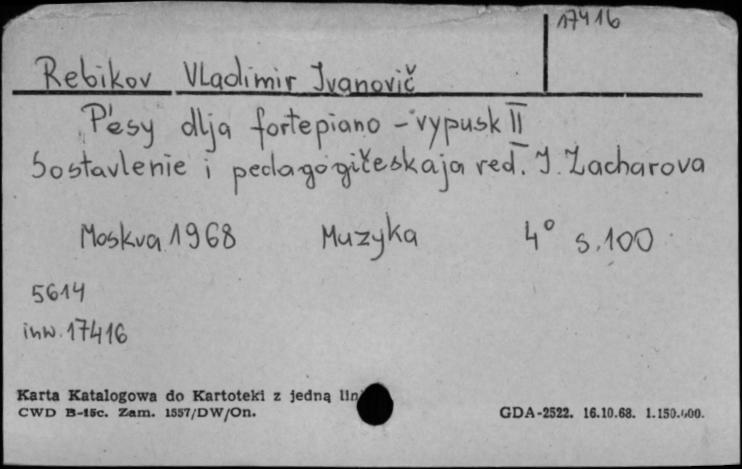 17416
Rebikov Vladimir Ivanovič
P'esy dlja fortepiano - vypusk II
Sostavlenie i pedagogičeskaja red. I. Zacharova
Moskva 1968 Muzyka 4° s. 100
5614
inw. 17416
Karta Katalogowa do Kartoteki z jedną lin
CWD B-15c. Zam. 1557/DW/On.
GDA-2522. 16.10.68. 1.150.000.